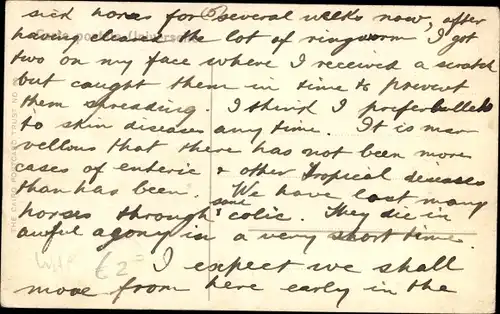 sick horses for several weeks now, after
having cleared the lot of ringworm I got
two on my face where I received a scratch
but caught them in time to prevent
them spreading. I think I prefer bullets
to skin diseases any time. It is mar
vellous that there has not been more
cases of enteric & other Tropical deseases
than has been. We have lost many
horses through sand colic. They die in
awful agony in a very short time.
I expect we shall
move from here early in the
£2=
THE CAIRO POSTCARD TRUST